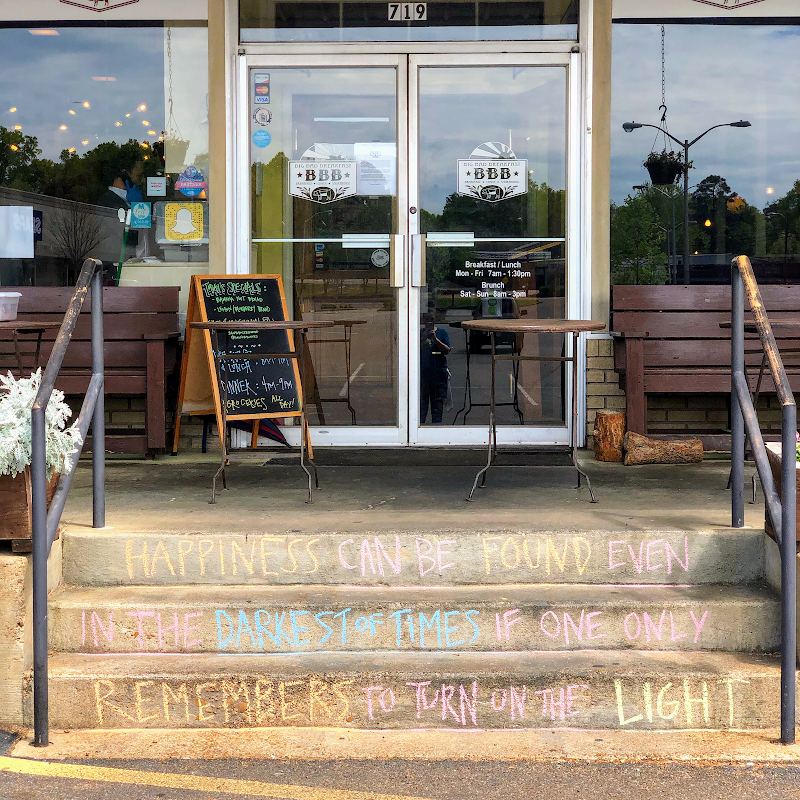 719
VISA
BIG BAD BREAKFAST
BBB
BIG BAD BREAKFAST
BBB
Breakfast / Lunch
Mon - Fri 7am - 1:30pm
Brunch
Sat - Sun 8am - 3pm
SPECIALS:
LUNCH:
DINNER: 4PM-9PM
GROCERIES ALL DAY!
HAPPINESS CAN BE FOUND EVEN
IN THE DARKEST OF TIMES IF ONE ONLY
REMEMBERS TO TURN ON THE LIGHT